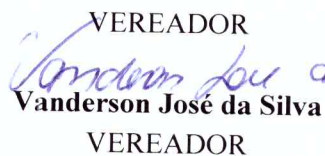 VEREADOR
Vanderson José
Vanderson José da Silva
VEREADOR